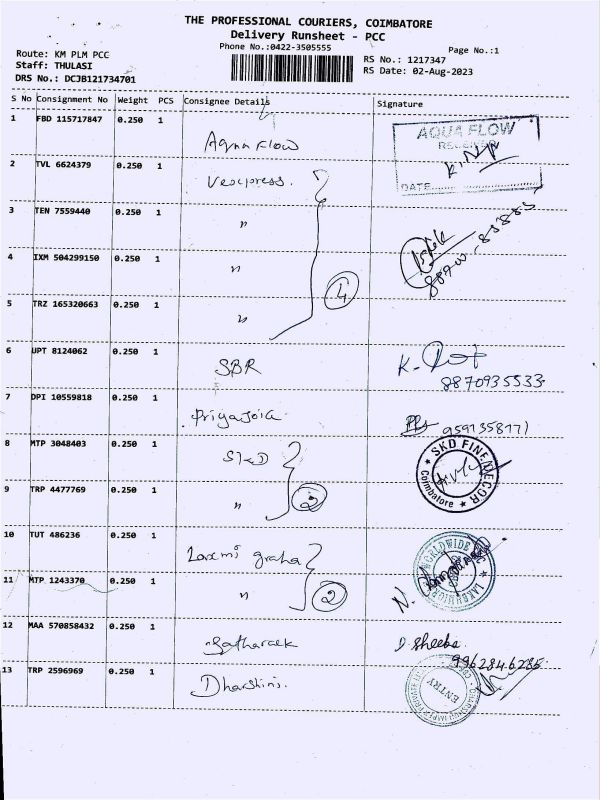 THE PROFESSIONAL COURIERS, COIMBATORE
Delivery Runsheet - PCC
Phone No.:0422-3505555
Page No.:1
Route: KM PLM PCC
Staff: THULASI
DRS No.: DCJB121734701
RS No.: 1217347
RS Date: 02-Aug-2023
S No Consignment No Weight PCS Consignee Details Signature
1 FBD 115717847 0.250 1 Aqua Flow AQUA FLOW
DATE
2 TVL 6624379 0.250 1
3 TEN 7559440 0.250 1 "
4 IXM 504299150 0.250 1 " 4
5 TRZ 165320663 0.250 1 "
6 UPT 8124062 0.250 1 SBR 8870935533
7 DPI 10559818 0.250 1
8 MTP 3048403 0.250 1 SKD SKD FINE DECOR Coimbatore
9 TRP 4477769 0.250 1 " 2
10 TUT 486236 0.250 1 Laxmi graha WORLDWIDE
11 MTP 1243370 0.250 1 " 2
12 MAA 570858432 0.250 1 D Sheeba
9962846285
13 TRP 2596969 0.250 1 Dharshini. ENTRY